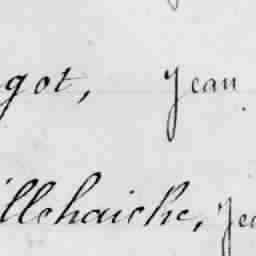 got, Jean
illehaiche, Je